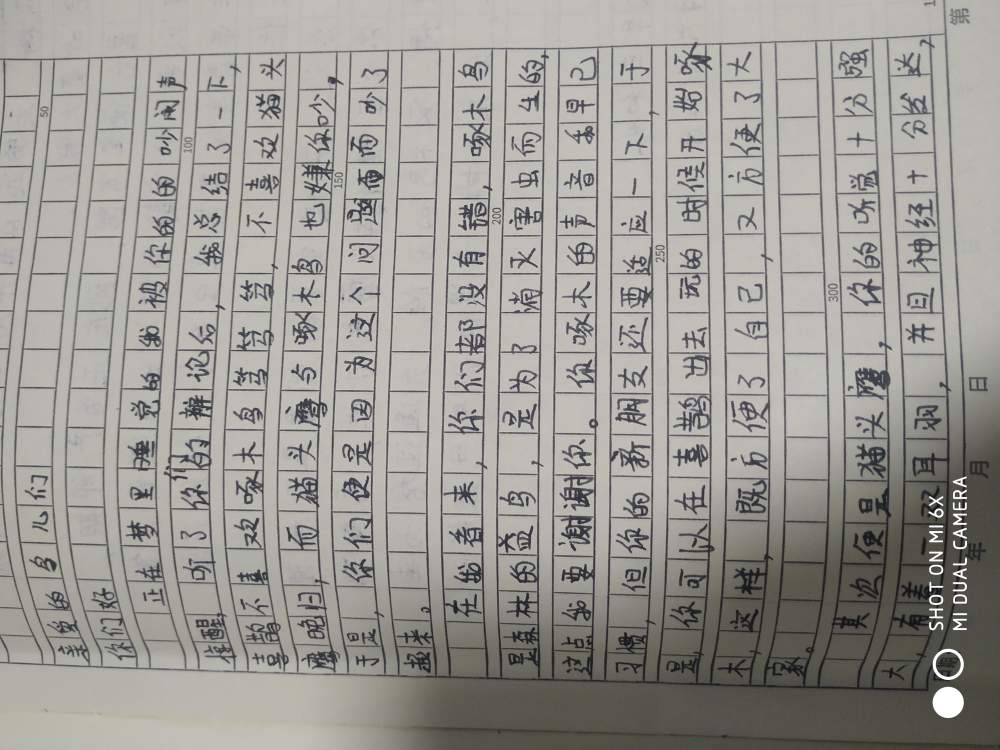 亲爱的鸟儿们
50
你们好
正在梦里睡觉的我被你的的吵闹声
100
惊醒,听了你们的辩论后,我总结了一下,
喜鹊不喜欢啄木鸟笃笃笃笃,不喜欢猫头
鹰晚归,而猫头鹰与啄木鸟也嫌你吵,
150
于是,你们便是因为这个问题而吵了
起来。
在我看来,你们都没有错,啄木鸟
200
是森林的益鸟,是为了消灭害虫而生的,
这点我要谢谢你。你啄木的声音我早已
习惯,但你的新朋友还要适应一下,于
250
是,你可以在喜鹊出去玩的时候开始啄
木,这样,既方便了自己,又方便了大
家。
300
其次便是猫头鹰,你的听觉十分强
大,有着一双耳羽,并且神经十分发达,
第
年 月 日
SHOT ON MI 6X
MI DUAL CAMERA